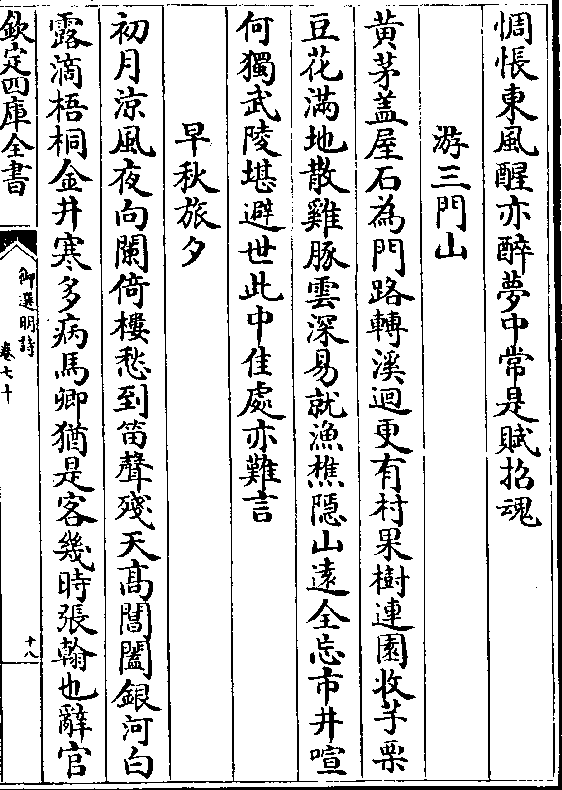 惆悵東風醒亦醉夢中常是賦招魂
游三門山
黃茅盖屋石為門路轉溪迴更有村果樹連園收芋栗
豆花滿地散雞豚雲深易就漁樵隱山遠全忘市井喧
何獨武陵堪避世此中佳處亦難言
早秋旅夕
初月涼風夜向闌倚樓愁到笛聲殘天高閶闔銀河白
露滴梧桐金井寒多病馬卿猶是客幾時張翰也辭官
欽定四庫全書
御選明詩
卷七十
十八